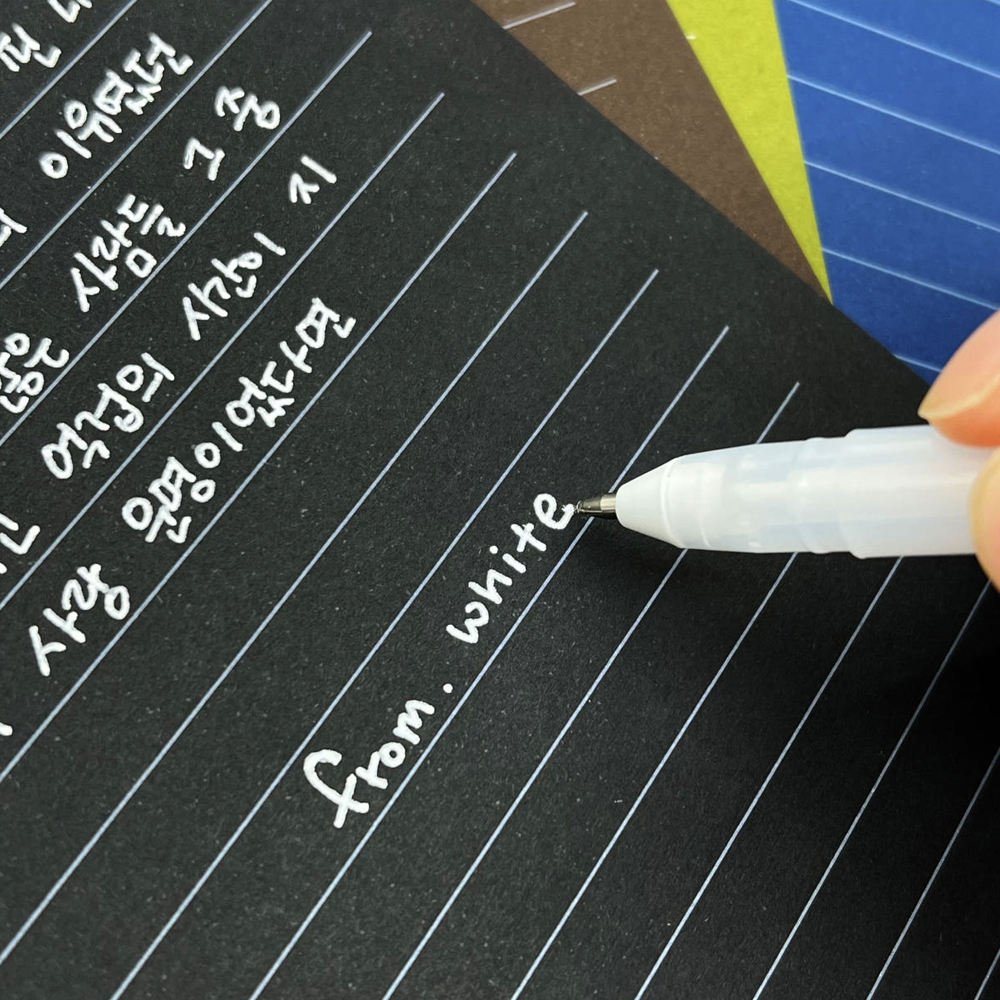 이유였던
사람들 그 중
억겁의 시간이 지
사랑 운명이었다면
from. white